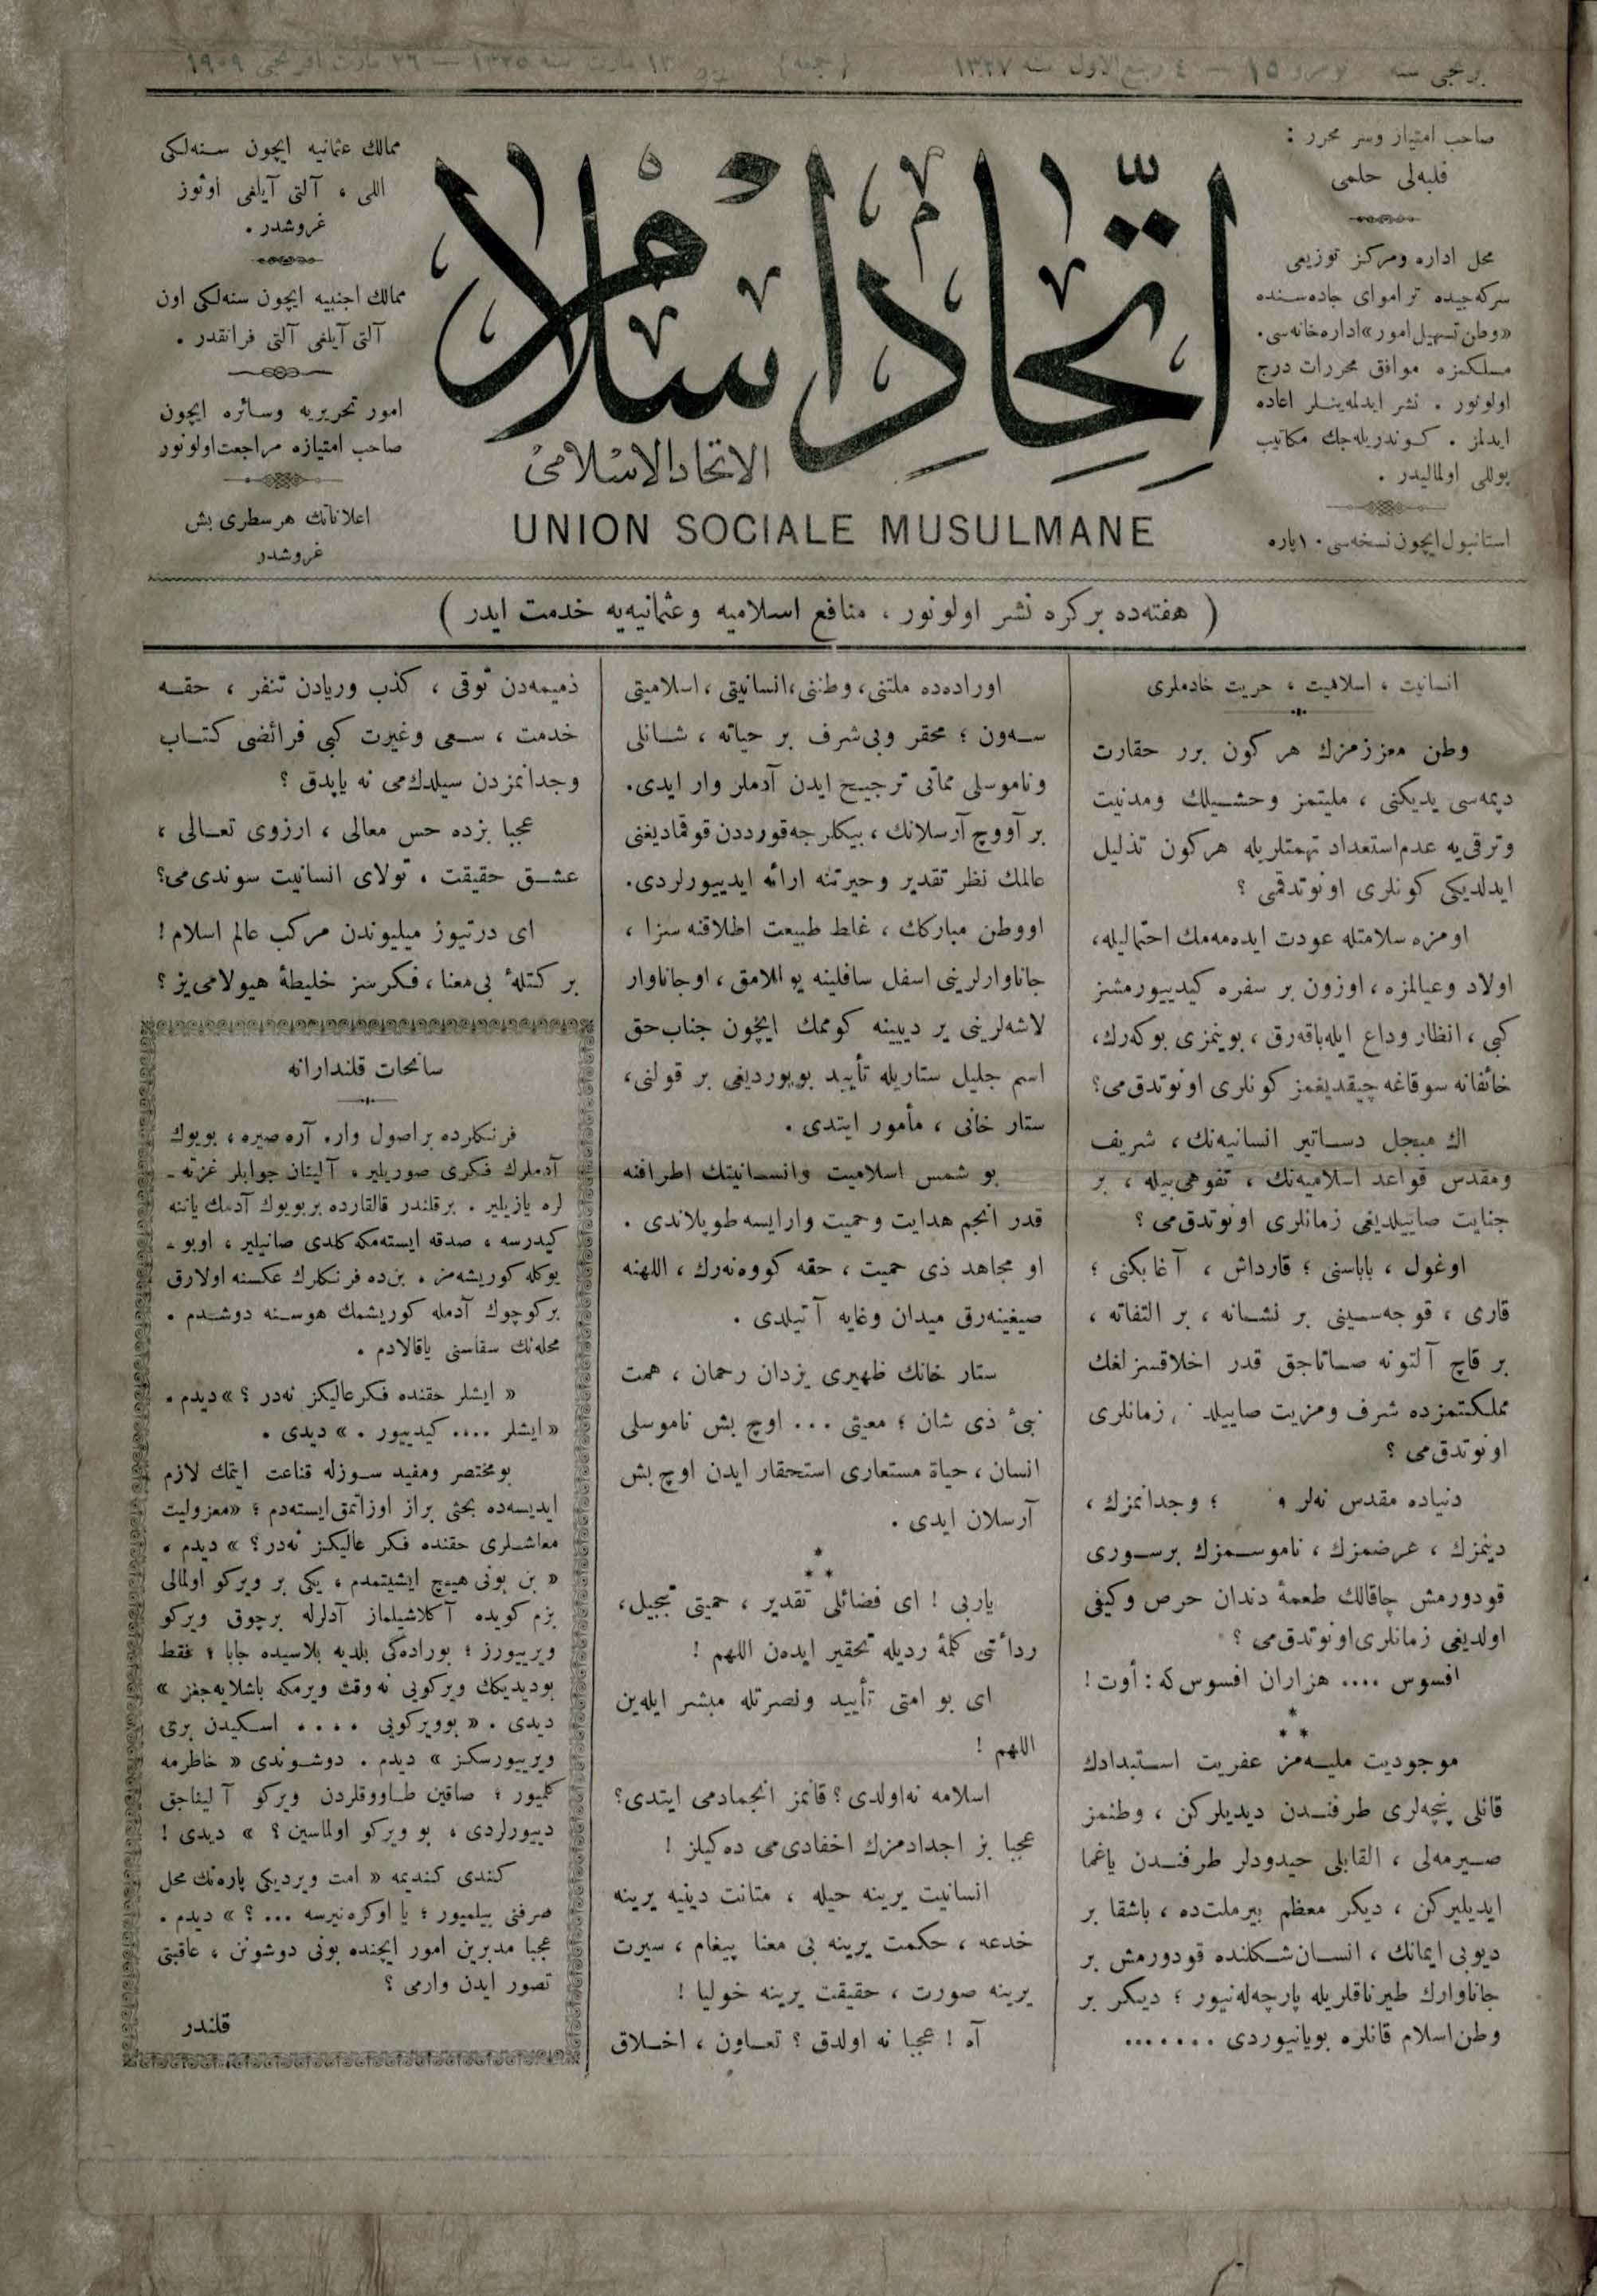 برنجی سنه نومرو ١٥ — ٤ ربیع الاول سنه ١٣٢٧ (جمعه) ١٣ مارت سنه ١٣٢٥ — ٢٦ مارت افرنجی ١٩٠٩
صاحب امتیاز وسر محرر :
فلبه‌لی حلمی
محل اداره ومرکز توزیعی
سرکه‌جیده تراموای جاده‌سنده
«وطن تسهیل امور» اداره‌خانه‌سی.
مسلکمزه موافق محررات درج
اولونور . نشر ایدلمه‌ینلر اعاده
ایدلمز . کوندریله‌جك مکاتیب
پوللی اولمالیدر .
استانبول ایچون نسخه‌سی ١٠ پاره
اتّحاد اسلام
الاتحاد الاسلامی
UNION SOCIALE MUSULMANE
ممالك عثمانیه ایچون سنه‌لکی
اللی ، آلتی آیلغی اوتوز
غروشدر .
ممالك اجنبیه ایچون سنه‌لکی اون
آلتی آیلغی آلتی فرانقدر .
امور تحریریه وسائره ایچون
صاحب امتیازه مراجعت اولونور
اعلاناتك هر سطری بش
غروشدر
( هفته‌ده بر کره نشر اولونور ، منافع اسلامیه وعثمانیه‌یه خدمت ایدر )
انسانیت ، اسلامیت ، حریت خادملری
وطن معززمزك هر کون برر حقارت
دیمه‌سی یدیکنی ، ملیتمز وحشیلك ومدنیت
وترقی‌یه عدم استعداد تهمتلریله هرکون تذلیل
ایدلدیکی کونلری اونوتدقمی ؟
اومزه سلامتله عودت ایده‌مه‌مك احتمالیله،
اولاد وعیالمزه ، اوزون بر سفره کیدییورمشز
کبی ، انظار وداع ایله باقه‌رق ، بوینمزی بوکه‌رك،
خائفانه سوقاغه چیقدیغمز کونلری اونوتدق‌می؟
اك مبجل دساتیر انسانیه‌نك ، شریف
ومقدس قواعد اسلامیه‌نك ، تفوهی بیله ، بر
جنایت صاییلدیغی زمانلری اونوتدق‌می ؟
اوغول ، باباسنی ؛ قارداش ، آغابکنی ؛
قاری ، قوجه‌سینی بر نشانه ، بر التفاته ،
بر قاچ آلتونه صاتاجق قدر اخلاقسزلغك
مملکتمزده شرف ومزیت صاییلد زمانلری
اونوتدق‌می ؟
دنیاده مقدس نه‌لر و ؛ وجدانمزك ،
دینمزك ، عرضمزك ، ناموسمزك برسوری
قودورمش چاقالك طعمهٔ دندان حرص وکیفی
اولدیغی زمانلری اونوتدق‌می ؟
افسوس .... هزاران افسوس که : أوت !
* * *
موجودیت ملیه‌مز عفریت استبدادك
قانلی پنچه‌لری طرفندن دیدیلرکن ، وطنمز
صیرمه‌لی ، القابلی حیدودلر طرفندن یاغما
ایدیلیرکن ، دیکر معظم بیرملت‌ده ، باشقا بر
دیوبی ایمانك ، انسان شکلنده قودورمش بر
جاناوارك طیرناقلریله پارچه‌له‌نیور ؛ دیکر بر
وطن اسلام قانلره بویانیوردی .......
اوراده‌ده ملتنی ، وطننی ، انسانیتی ، اسلامیتی
سه‌ون ؛ محقر وبی‌شرف بر حیاته ، شانلی
وناموسلی مماتی ترجیح ایدن آدملر وار ایدی.
بر آووچ آرسلانك ، بیکلرجه قورددن قورقمادیغنی
عالمك نظر تقدیر وحیرتنه ارائه ایدییورلردی.
اووطن مبارکك ، غلط طبیعت اطلاقنه سزا ،
جاناوارلرینی اسفل سافلینه یوللامق ، اوجاناوار
لاشه‌لرینی یر دیبینه کوممك ایچون جناب حق
اسم جلیل ستاریله تأیید بویوردیغی بر قولنی،
ستار خانی ، مأمور ایتدی .
بو شمس اسلامیت وانسانیتك اطرافنه
قدر انجم هدایت وحمیت وارایسه طوپلاندی .
او مجاهد ذی حمیت ، حقه کووه‌نه‌رك ، اللهنه
صیغینه‌رق میدان وغایه آتیلدی .
ستار خانك ظهیری یزدان رحمان ، همت
نبیٔ ذی شان ؛ معیتی ... اوچ بش ناموسلی
انسان ، حیاة مستعاری استحقار ایدن اوچ بش
آرسلان ایدی .
* * *
یاربی ! ای فضائلی تقدیر ، حمیتی تبجیل،
ردائتی کلمهٔ ردیله تحقیر ایده‌ن اللهم !
ای بو امتی تأیید ونصرتله مبشر ایله‌ین
اللهم !
اسلامه نه اولدی ؟ قانمز انجمادمی ایتدی؟
عجبا بز اجدادمزك اخفادی‌می ده‌کیلز !
انسانیت یرینه حیله ، متانت دینیه یرینه
خدعه ، حکمت یرینه بی معنا پیغام ، سیرت
یرینه صورت ، حقیقت یرینه خولیا !
آه ! عجبا نه اولدق ؟ تعاون ، اخلاق
ذمیمه‌دن توقی ، کذب وریادن تنفر ، حقه
خدمت ، سعی وغیرت کبی فرائضی کتاب
وجدانمزدن سیلدك‌می نه یاپدق ؟
عجبا بزده حس معالی ، ارزوی تعالی ،
عشق حقیقت ، تولای انسانیت سوندی‌می؟
ای درتیوز میلیوندن مرکب عالم اسلام !
بر کتلهٔ بی‌معنا ، فکرسز خلیطهٔ هیولامی‌یز ؟
سانحات قلندارانه
فرنکلرده بر اصول وار. آره‌صیره ، بویوك
آدملرك فکری صوریلیر ، آلینان جوابلر غزته-
لره یازیلیر . برقلندر قالقارده بربویوك آدمك یاننه
کیدرسه ، صدقه ایسته‌مکه کلدی صانیلیر ، اوبو-
یوکله کوریشه‌مز . بن‌ده فرنکلرك عکسنه اولارق
برکوچوك آدمله کوریشمك هوسنه دوشدم .
محله‌نك سقاسنی یاقالادم .
« ایشلر حقنده فکرعالیکز نه‌در ؟ » دیدم .
« ایشلر .... کیدییور . » دیدی .
بومختصر ومفید سوزله قناعت ایتمك لازم
ایدیسه‌ده بحثی براز اوزاتمق ایسته‌دم ؛ «معزولیت
معاشلری حقنده فکر عالیکز نه‌در ؟ » دیدم ،
« بن بونی هیچ ایشیتمدم ، یکی بر ویرکو اولمالی
بزم کویده آکلاشیلماز آدلرله برچوق ویرکو
ویرییورز ؛ بوراده‌کی بلدیه بلاسیده جابا ؛ فقط
بودیدیکك ویرکویی نه وقت ویرمکه باشلایه‌جغز »
دیدی . « بوویرکویی .... اسکیدن بری
ویرییورسکز » دیدم . دوشوندی « خاطرمه
کلمیور ؛ صاقین طاووقلردن ویرکو آلیناجق
دییورلردی ، بو ویرکو اولماسین ؟ » دیدی !
کندی کندیمه « امت ویردیکی پاره‌نك محل
صرفنی بیلمیور ؛ یا اوکره‌نیرسه ... ؟ » دیدم .
عجبا مدبرین امور ایچنده بونی دوشونن ، عاقبتی
تصور ایدن وارمی ؟
قلندر